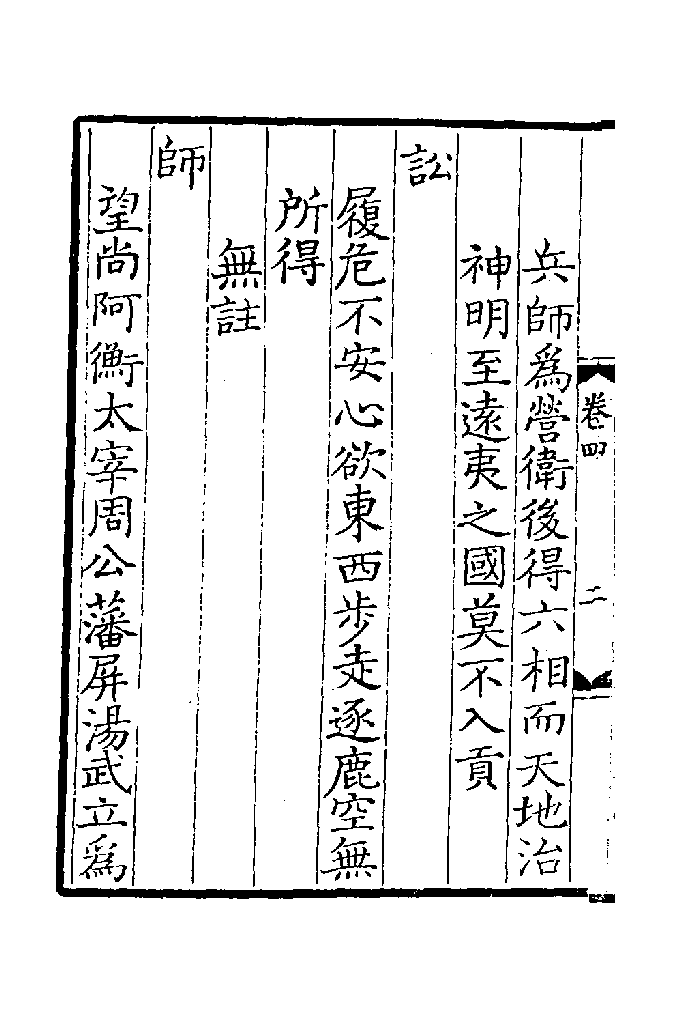 卷四
二
兵師爲營衛後得六相而天地治
神明至遠夷之國莫不入貢
訟
履危不安心欲東西步走逐鹿空無
所得
無註
師
望尚阿衡太宰周公藩屏湯武立爲